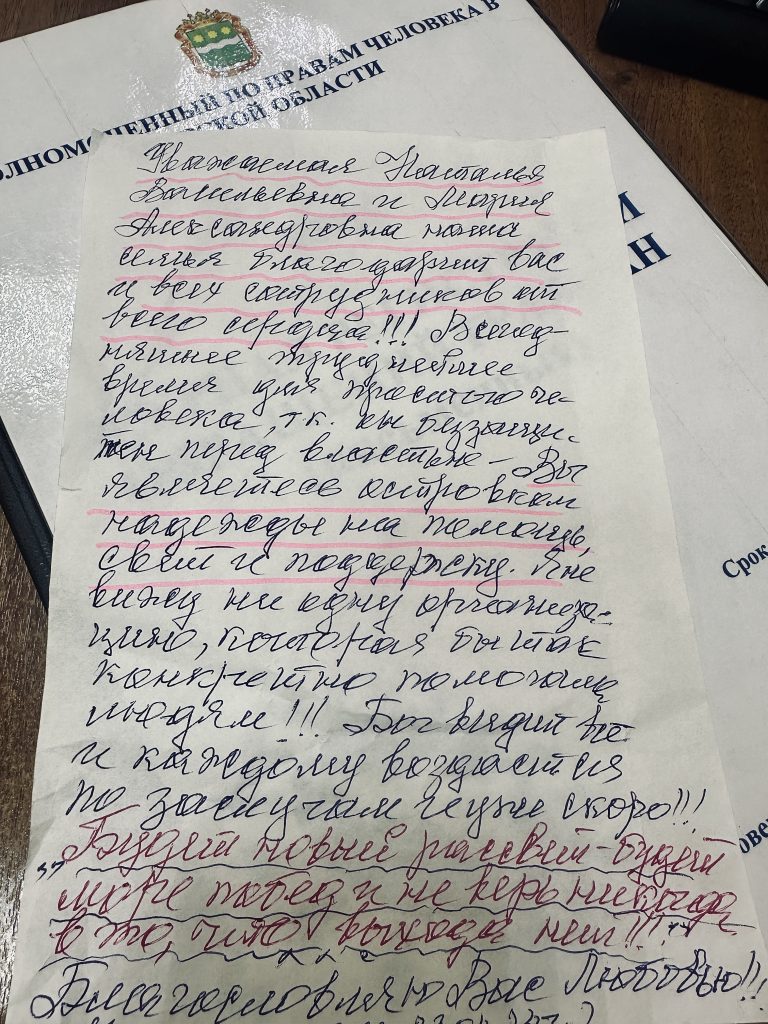 ОЛНОМОЧЕННЫЙ ПО ПРАВАМ ЧЕЛОВЕКА В
СКОЙ ОБЛАСТИ
Срок
Уважаемая Наталья
Васильевна и Мария
Александровна наша
семья благодарит вас
и всех сотрудников от
всего сердца!!! В сегод-
няшнее труднейшее
время для простого че-
ловека, т.к. он беззащи-
тен перед властью – Вы
являетесь островком
надежды на помощь,
свет и поддержку. Я не
вижу ни одну организа-
цию, которая бы так
конкретно помогала
людям!!! Бог видит всё
и каждому воздастся
по заслугам и уже скоро!!!
"Будет новый рассвет – будет
море побед и не верь никогда
в то, что выхода нет!!!"
Благословляю Вас Любовью!!!